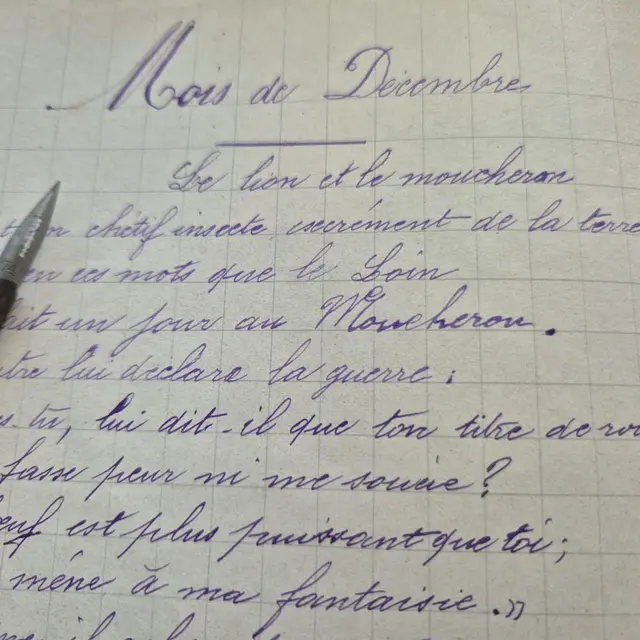 Mois de Décembre
Le lion et le moucheron
chétif insecte, excrément de la terre
en ces mots que le Loin
un jour au Moucheron.
lui déclara la guerre;
tu, lui dit-il que ton titre de roi
fasse peur ni me soucie?
est plus puissant que toi;
mène à ma fantaisie.»